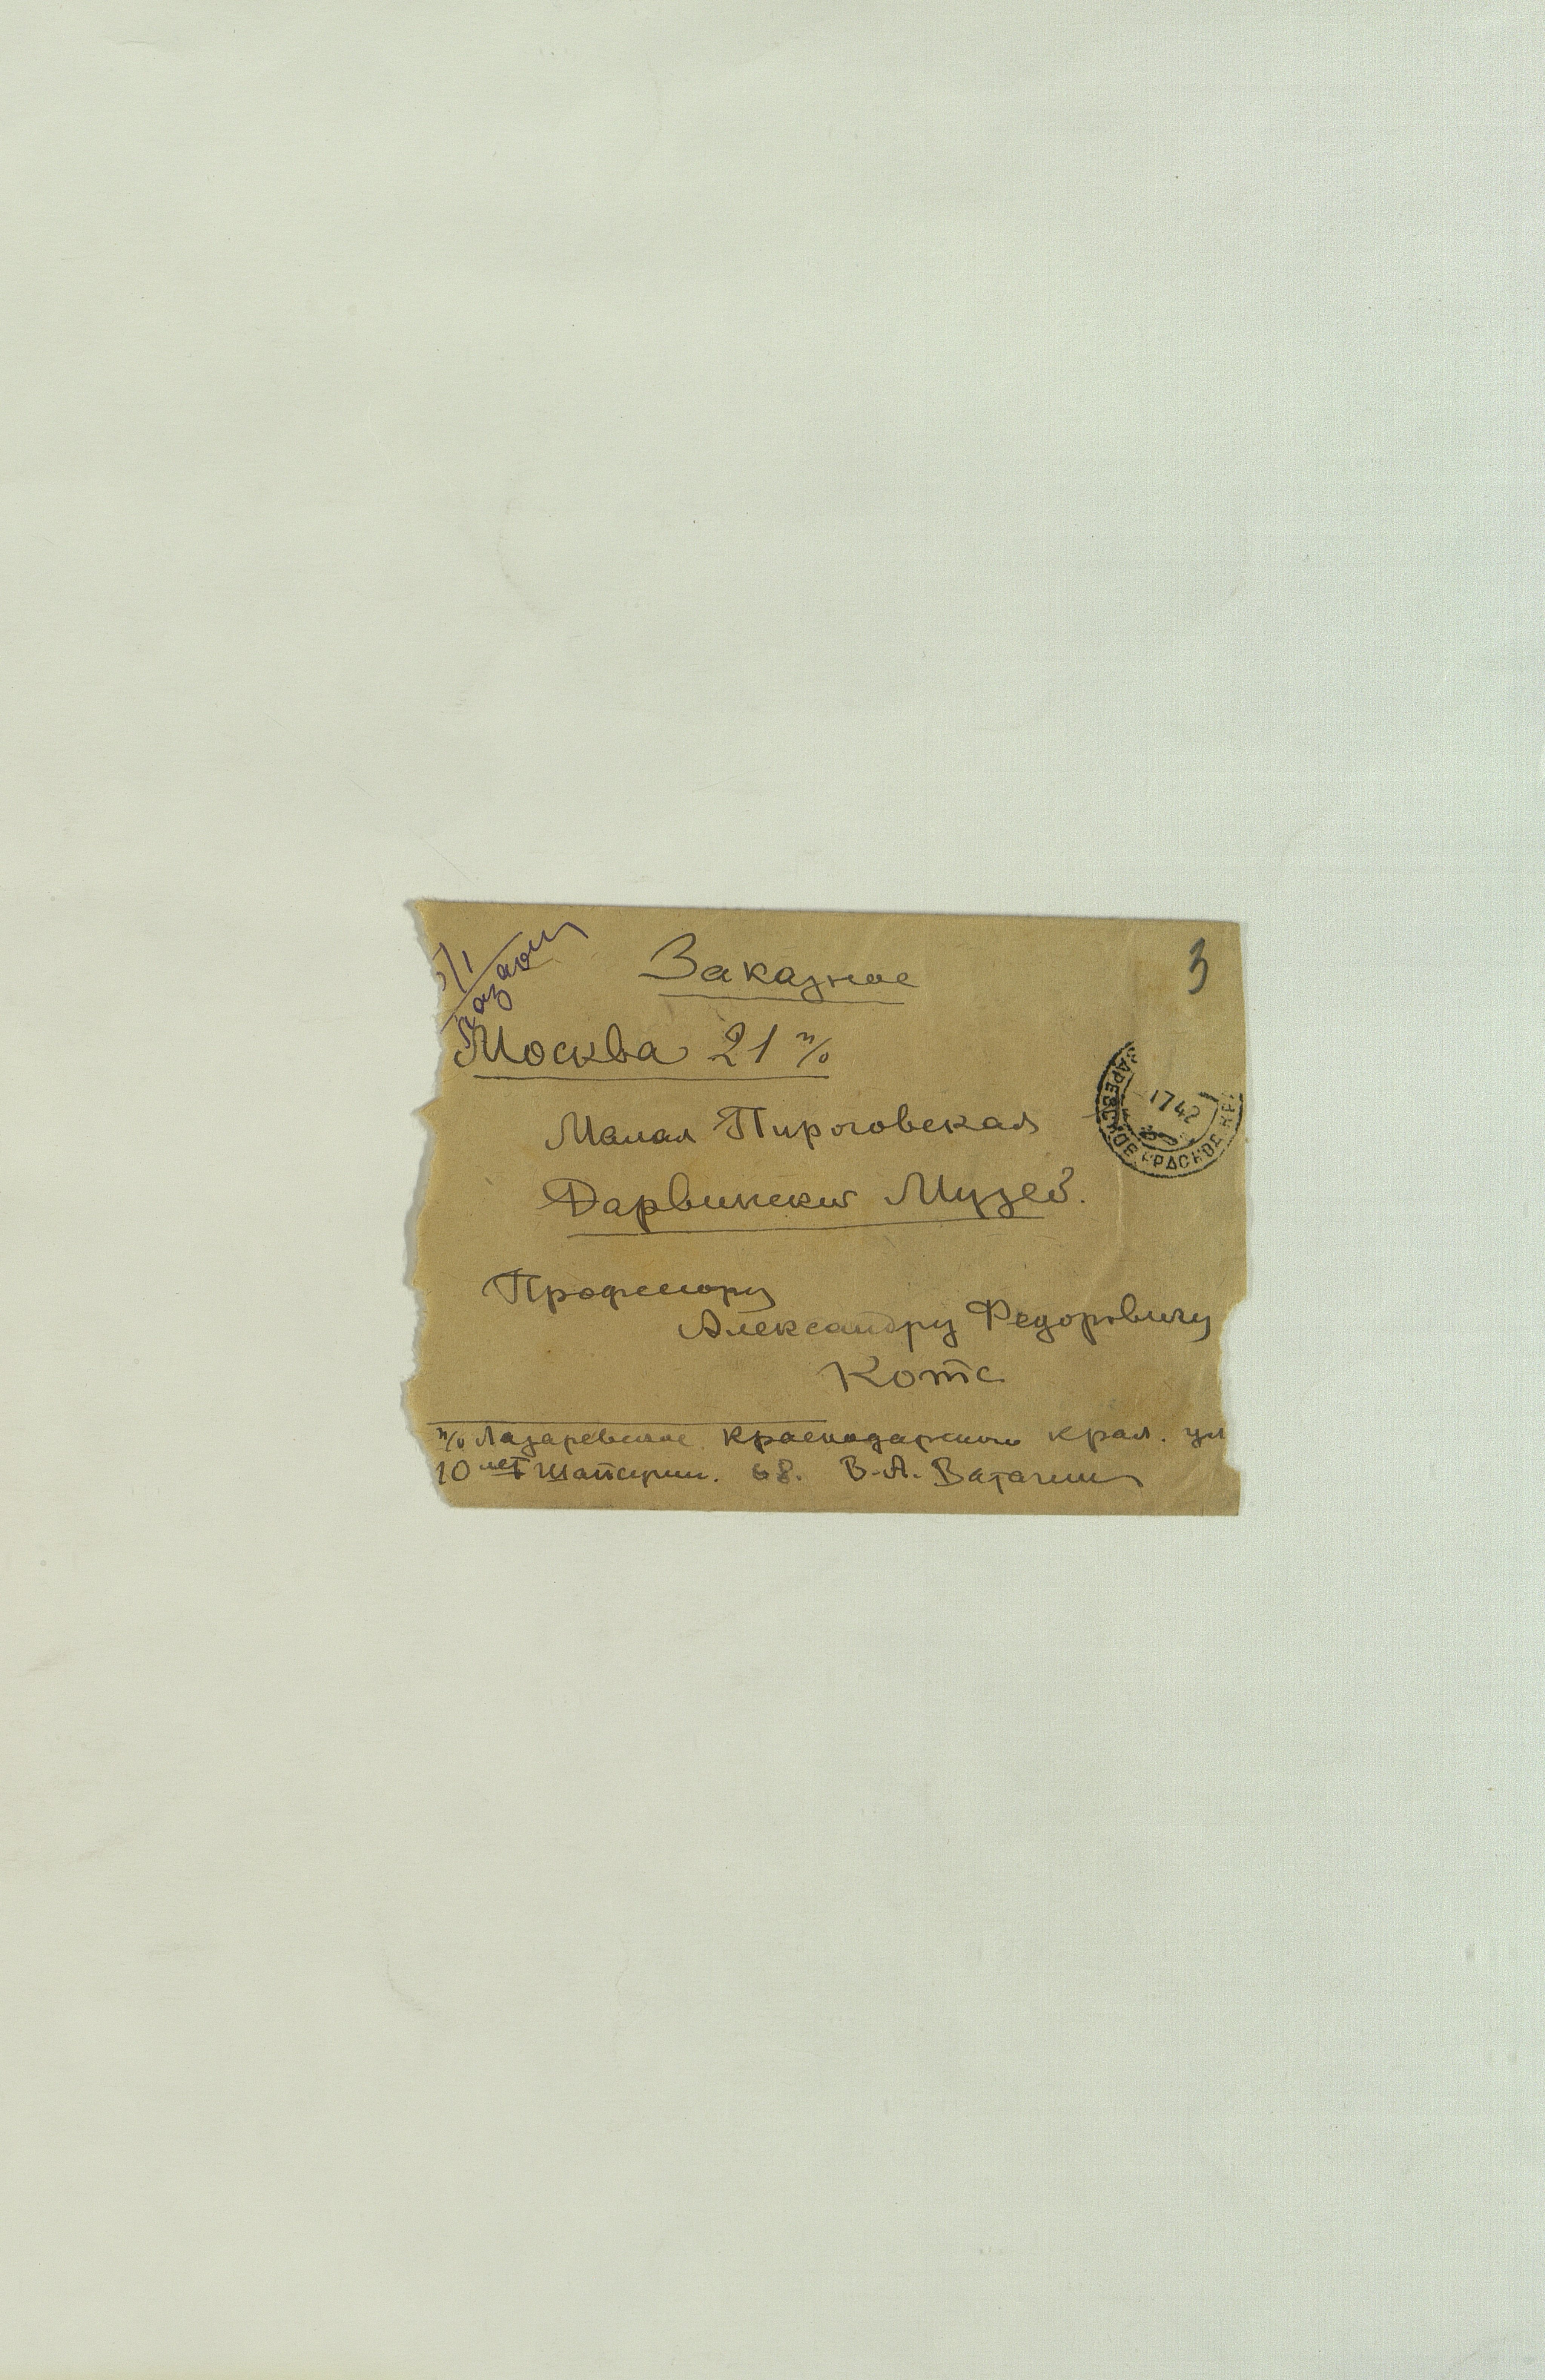 3
Заказное
Москва 21 п/о
Малая Пироговская
Дарвинский Музей.
Профессору
Александру Федоровичу
Котс
п/о Лазаревское Краснодарского края. ул
10 лет Шапсугии. 68. В.А. Ватагин
ЗАРЕВСКОЕ КРАСНОД КР.
1742